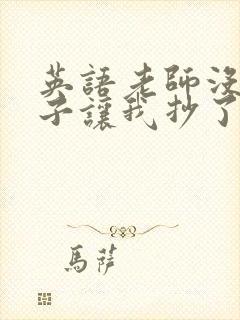 英語老師沒
子讓我抄了
馬薩